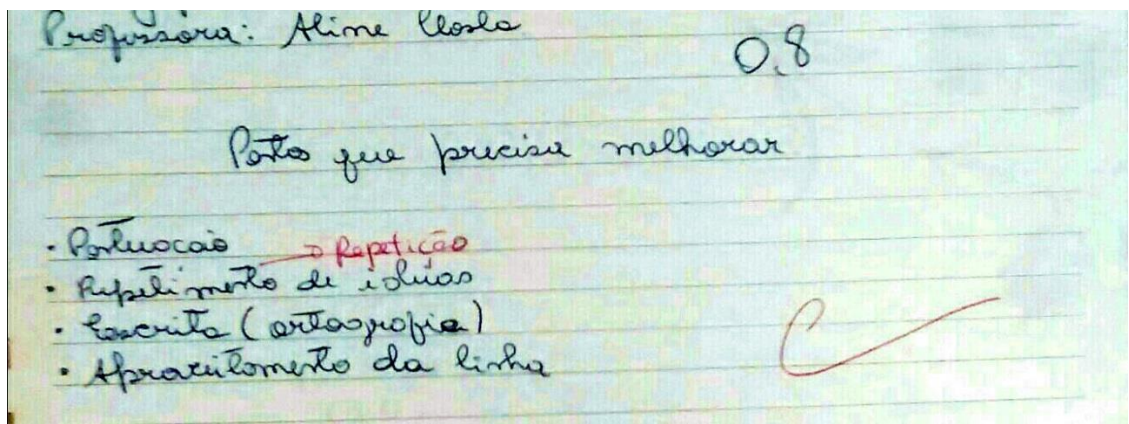 Professora: Aline Costa
0,8
Potos que precisa melhorar
• Pontuocaio
→ Repetição
• Repetimento de ideias
• Escrita (ortogrofia)
• Aproveitamento da linha